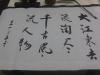 大江東去
浪淘尽
千古風
流人物